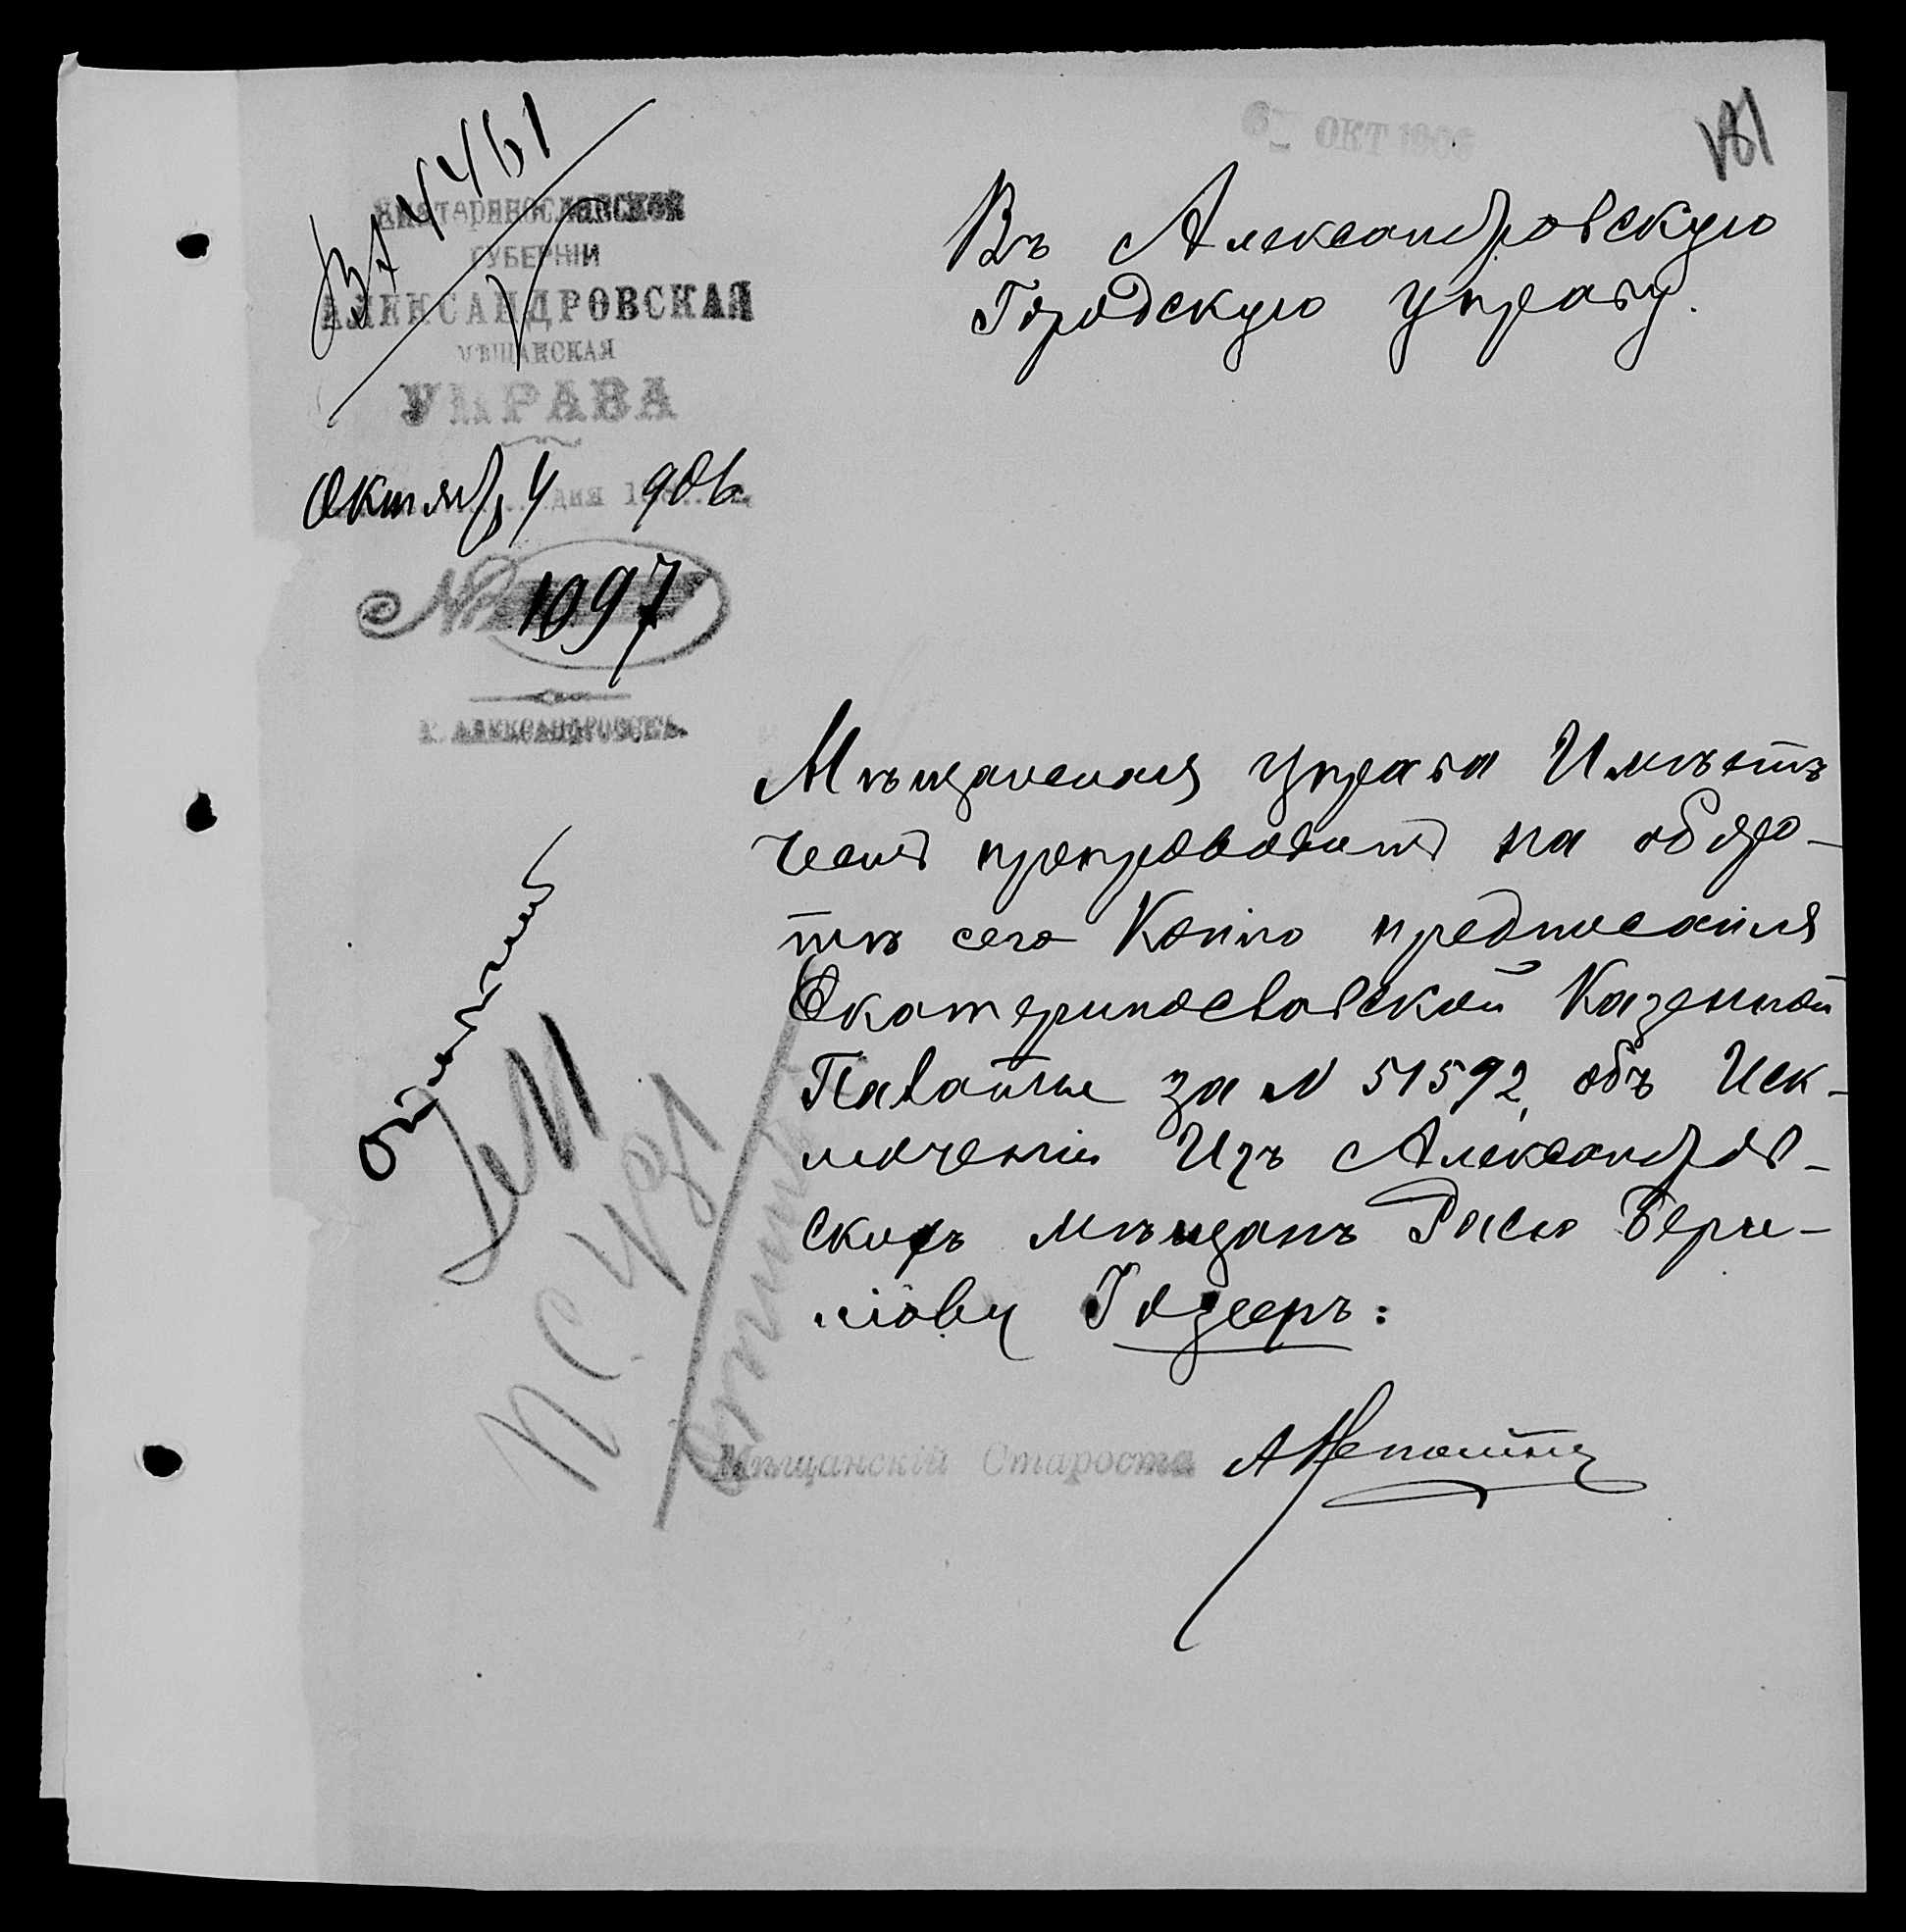 181
ОКТ 1906
Вх 4461
ЕКАТЕРИНОСЛАВСКОЙ
ГУБЕРНІИ
АЛЕКСАНДРОВСКАЯ
МѢЩАНСКАЯ
УПРАВА
Октяб 4 дня 1906
№ 1097
Г. АЛЕКСАНДРОВСКЪ
Въ Александровскую
Городскую управу.
Мѣщанская управа Имѣетъ
честь препроводить на оборо-
тѣ сего Копію предписанія
Екатеринославской Казенной
Палаты за N 51592, объ Иск-
люченіи Изъ Александров-
скихъ мѣщанъ Расю Берки-
ніову Гозеръ:
Мѣщанскій Староста